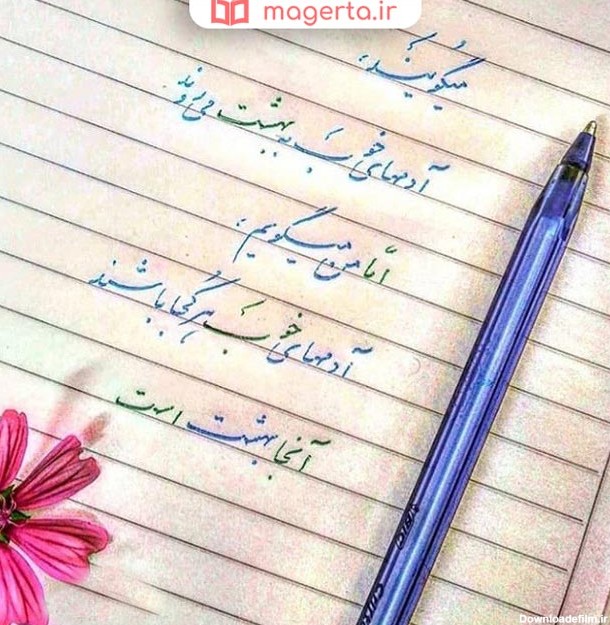 magerta.ir
میگویند،
آدمهای خوب به بهشت می‌روند
امّا من میگویم؛
آدمهای خوب هر کجا باشند
آنجا بهشت است
BIC
Downloadefilm.ir